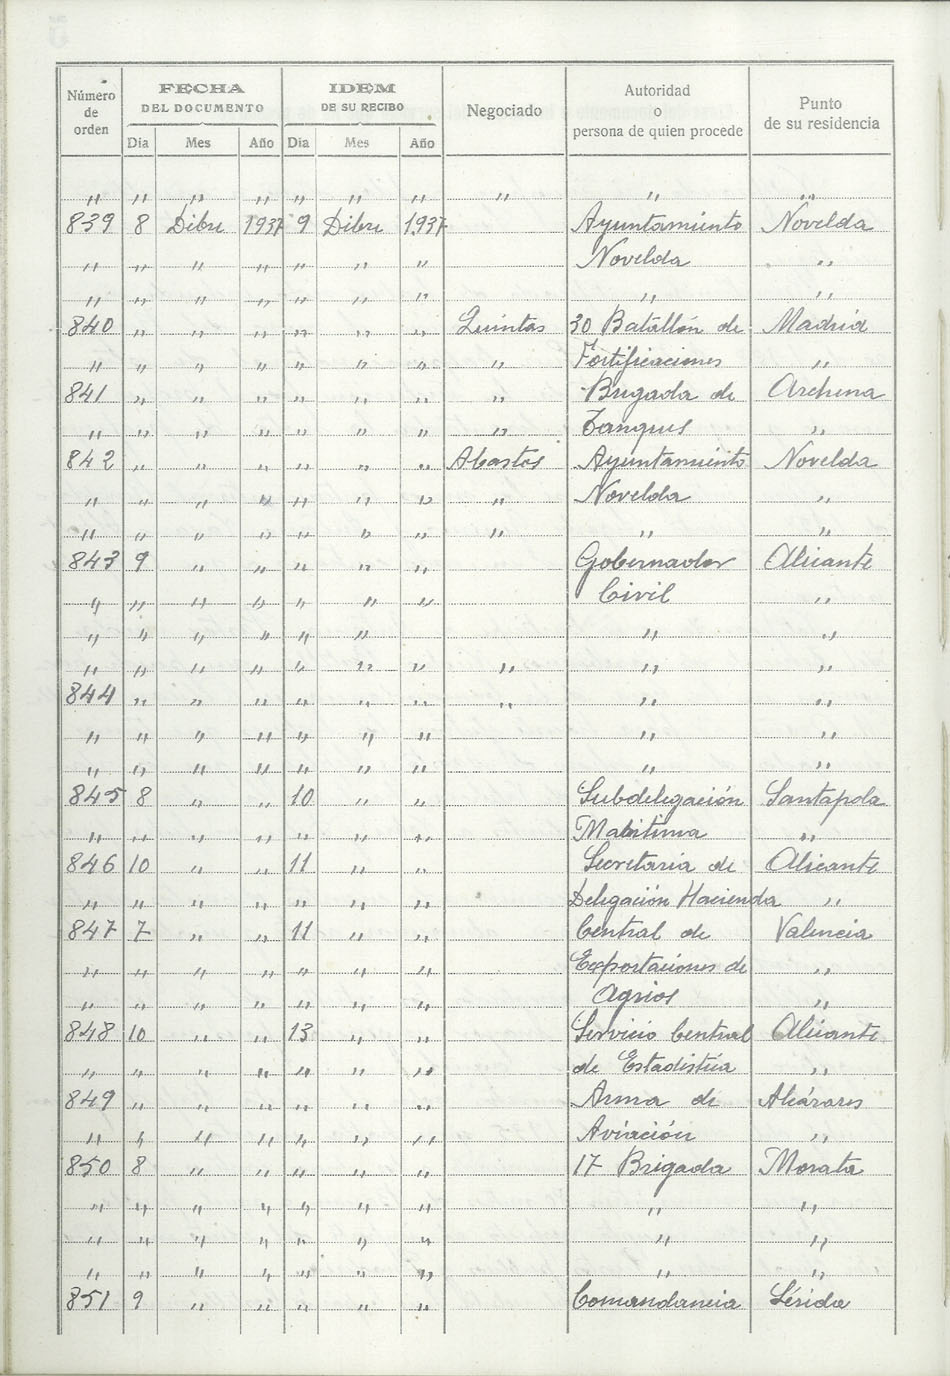 Número de orden | FECHA DEL DOCUMENTO | IDEM DE SU RECIBO | Negociado | Autoridad o persona de quien procede | Punto de su residencia
Día | Mes | Año | Día | Mes | Año
" | " | " | " | " | " | " | " | " | "
839 | 8 | Dibre | 1937 | 9 | Dibre | 1937 | | Ayuntamiento | Novelda
" | " | " | " | " | " | " | | Novelda | "
" | " | " | " | " | " | " | | " | "
840 | " | " | " | " | " | " | Quintas | 30 Batallón de | Madrid
" | " | " | " | " | " | " | " | Fortificaciones | "
841 | " | " | " | " | " | " | " | Brigada de | Archena
" | " | " | " | " | " | " | " | Tanques | "
842 | " | " | " | " | " | " | Abastos | Ayuntamiento | Novelda
" | " | " | " | " | " | " | " | Novelda | "
" | " | " | " | " | " | " | " | " | "
843 | 9 | " | " | " | " | " | | Gobernador | Alicante
" | " | " | " | " | " | " | | Civil | "
" | " | " | " | " | " | | | " | "
" | " | " | " | " | " | " | " | " | "
844 | " | " | " | " | " | " | " | " | "
" | " | " | " | " | " | " | | " | "
" | " | " | " | " | " | " | | " | "
845 | 8 | " | " | 10 | " | " | | Subdelegación | Santapola
" | " | " | " | " | " | " | | Maritima | "
846 | 10 | " | " | 11 | " | " | | Secretaria de | Alicante
" | " | " | " | " | " | " | | Delegación Hacienda | "
847 | 7 | " | " | 11 | " | " | | Central de | Valencia
" | " | " | " | " | " | " | | Exportaciones de | "
" | " | " | " | " | " | " | | Agrios | "
848 | 10 | " | " | 13 | " | " | | Servicio Central | Alicante
" | " | " | " | " | " | " | | de Estadistica | "
849 | " | " | " | " | " | " | | Arma de | Alcázares
" | " | " | " | " | " | " | | Aviación | "
850 | 8 | " | " | " | " | " | | 17 Brigada | Morata
" | " | " | " | " | " | " | | " | "
" | " | " | " | " | " | " | | " | "
" | " | " | " | " | " | " | | " | "
851 | 9 | " | " | " | " | " | | Comandancia | Lérida